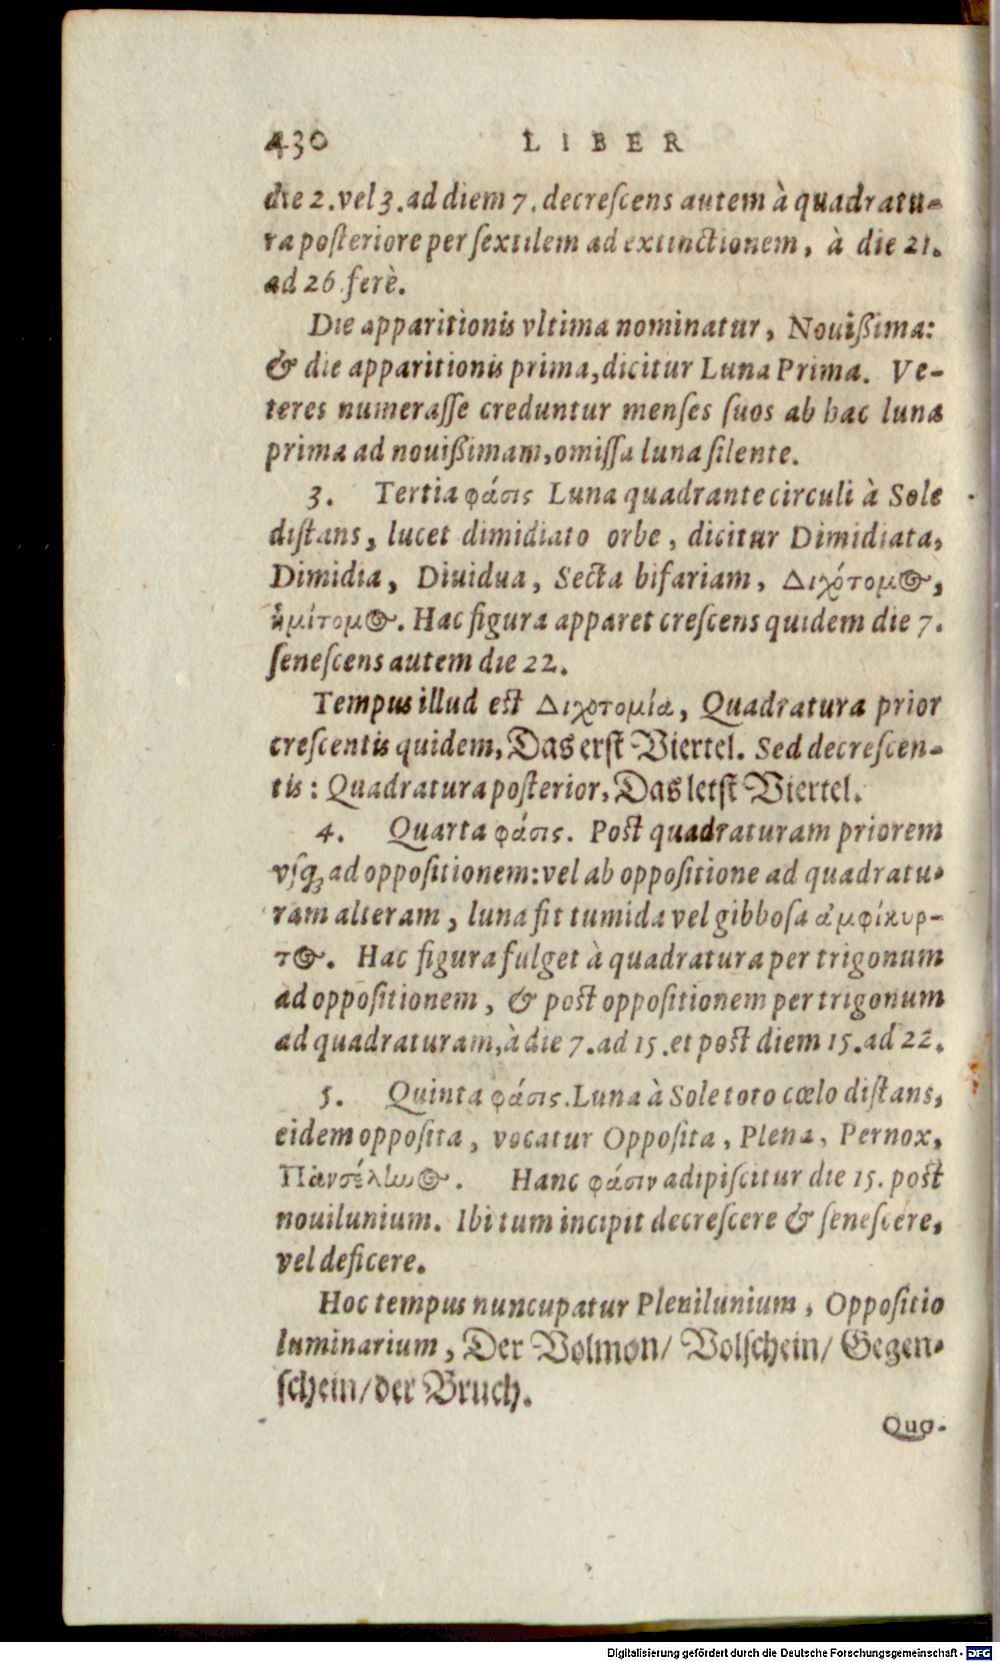 430 LIBER
die 2. vel 3. ad diem 7. decreſcens autem à quadratu-
ra poſteriore per ſextilem ad extinctionem, à die 21.
ad 26 ferè.
Die apparitionis vltima nominatur, Nouiſsima:
& die apparitionis prima, dicitur Luna Prima. Ve-
teres numeraſſe creduntur menſes ſuos ab hac luna
prima ad nouiſsimam, omiſſa luna ſilente.
3. Tertia φάσις Luna quadrante circuli à Sole
diſtans, lucet dimidiato orbe, dicitur Dimidiata,
Dimidia, Diuidua, Secta bifariam, Διχότομος,
ἡμίτομος. Hac figura apparet creſcens quidem die 7.
ſeneſcens autem die 22.
Tempus illud eſt Διχοτομία, Quadratura prior
creſcentis quidem, Das erſt Viertel. Sed decreſcen-
tis: Quadratura poſterior, Das letſt Viertel.
4. Quarta φάσις. Poſt quadraturam priorem
vſq; ad oppoſitionem: vel ab oppoſitione ad quadratu-
ram alteram, luna fit tumida vel gibboſa ἀμφίκυρ-
τος. Hac figura fulget à quadratura per trigonum
ad oppoſitionem, & poſt oppoſitionem per trigonum
ad quadraturam, à die 7. ad 15. et poſt diem 15. ad 22.
5. Quinta φάσις. Luna à Sole toto cœlo diſtans,
eidem oppoſita, vocatur Oppoſita, Plena, Pernox,
Πανσέληνος. Hanc φάσιν adipiſcitur die 15. poſt
nouilunium. Ibi tum incipit decreſcere & ſeneſcere,
vel deficere.
Hoc tempus nuncupatur Plenilunium, Oppoſitio
luminarium, Der Volmon/ Volſchein/ Gegen-
ſchein/ der Bruch.
Quo-
Digitalisierung gefördert durch die Deutsche Forschungsgemeinschaft - DFG